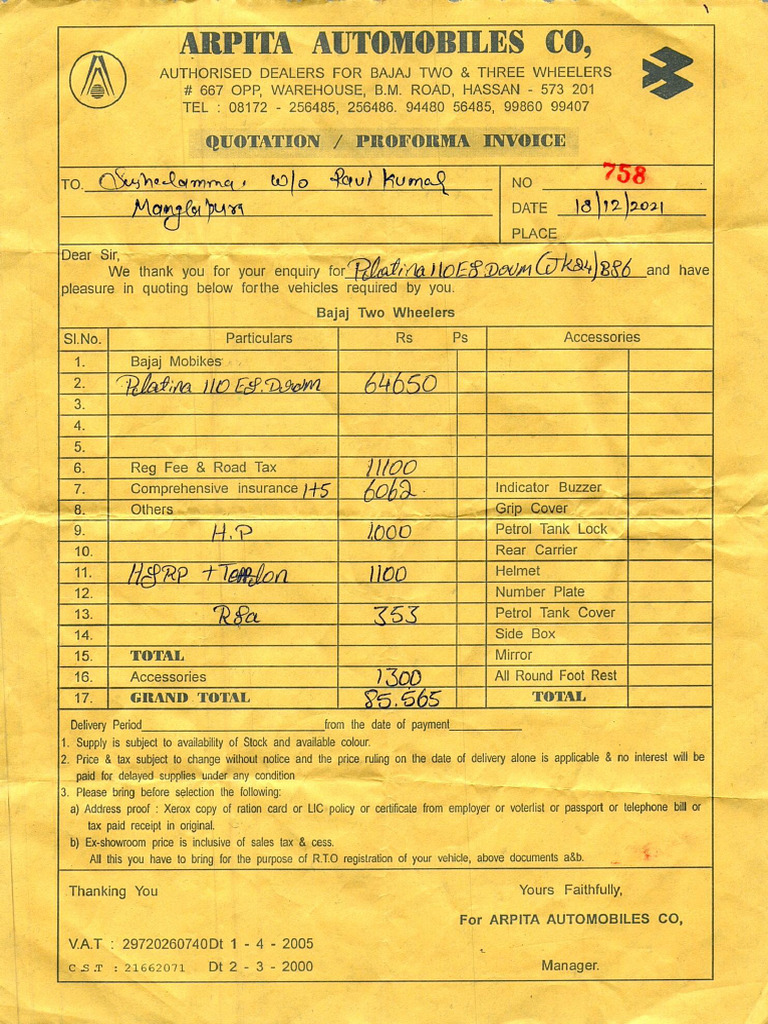 ARPITA AUTOMOBILES CO,
AUTHORISED DEALERS FOR BAJAJ TWO & THREE WHEELERS
# 667 OPP, WAREHOUSE, B.M. ROAD, HASSAN - 573 201
TEL : 08172 - 256485, 256486. 94480 56485, 99860 99407
QUOTATION / PROFORMA INVOICE
TO. Susheelamma. w/o Ravi Kumar
NO 758
Manglapura
DATE 18/12/2021
PLACE
Dear Sir,
We thank you for your enquiry for Platina 110 ES Drum 886 and have
pleasure in quoting below for the vehicles required by you.
Bajaj Two Wheelers
Sl.No. Particulars Rs Ps Accessories
1. Bajaj Mobikes
2. Platina 110 ES. Drum 64650
3.
4.
5.
6. Reg Fee & Road Tax 11100
7. Comprehensive insurance 1+5 6062 Indicator Buzzer
8. Others Grip Cover
9. H.P 1000 Petrol Tank Lock
10. Rear Carrier
11. HSRP + 1100 Helmet
12. Number Plate
13. RSa 353 Petrol Tank Cover
14. Side Box
15. TOTAL Mirror
16. Accessories 1300 All Round Foot Rest
17. GRAND TOTAL 85.565 TOTAL
Delivery Period from the date of payment
1. Supply is subject to availability of Stock and available colour.
2. Price & tax subject to change without notice and the price ruling on the date of delivery alone is applicable & no interest will be
paid for delayed supplies under any condition
3. Please bring before selection the following:
a) Address proof : Xerox copy of ration card or LIC policy or certificate from employer or voterlist or passport or telephone bill or
tax paid receipt in original.
b) Ex-showroom price is inclusive of sales tax & cess.
All this you have to bring for the purpose of R.T.O registration of your vehicle, above documents a&b.
Thanking You Yours Faithfully,
For ARPITA AUTOMOBILES CO,
V.A.T : 29720260740Dt 1 - 4 - 2005
C.S.T : 21662071 Dt 2 - 3 - 2000 Manager.